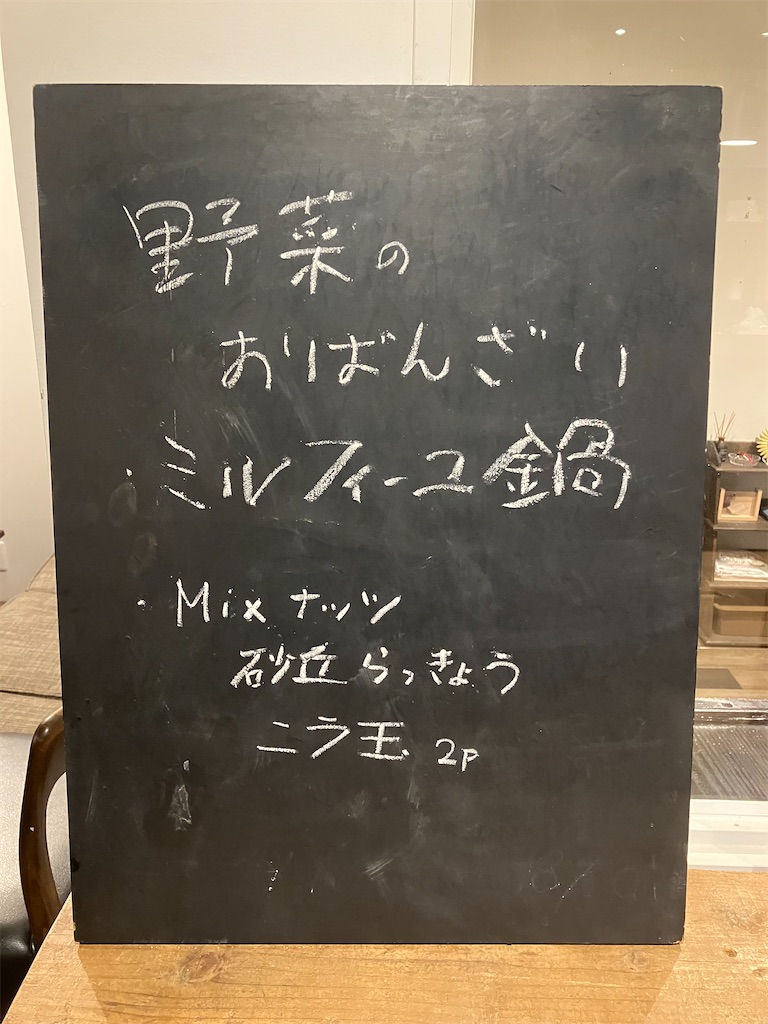 野菜の
おりばんざい
・ミルフィーユ鍋
・Mixナッツ
砂丘らっきょう
ニラ玉 2P